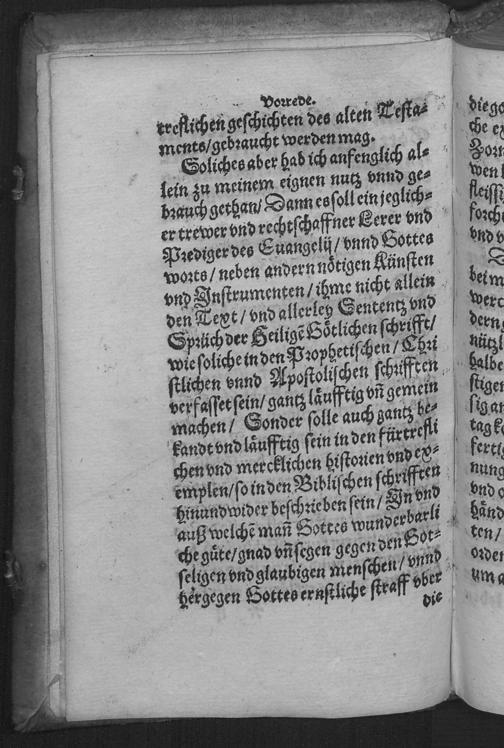 Vorrede.
treflichen geschichten des alten Testa-
ments/ gebraucht werden mag.
Soliches aber hab ich anfenglich al-
lein zu meinem eignen nutz vnnd ge-
brauch gethan/ Dann es soll ein jeglich-
er trewer vnd rechtschaffner Lerer vnd
Prediger des Euangelij/ vnnd Gottes
worts/ neben andern nötigen Künsten
vnd Instrumenten/ ihme nicht allein
den Text/ vnd allerley Sententz vnd
Sprüch der Heiligē Götlichen schrifft/
wie soliche in den Prophetischen/ Chri
stlichen vnnd Apostolischen schrifften
verfasset sein/ gantz läufftig vn̄ gemein
machen/ Sonder solle auch gantz be-
kandt vnd läufftig sein in den fürtrefli
chen vnd mercklichen historien vnd ex-
emplen/ so in den Biblischen schrifften
hin und wider beschrieben sein/ In vnd
auß welchē man̄ Gottes wunderbarli
che güte/ gnad vn̄ segen gegen den Got-
seligen vnd glaubigen menschen/ vnnd
hergegen Gottes ernstliche straff vber
die